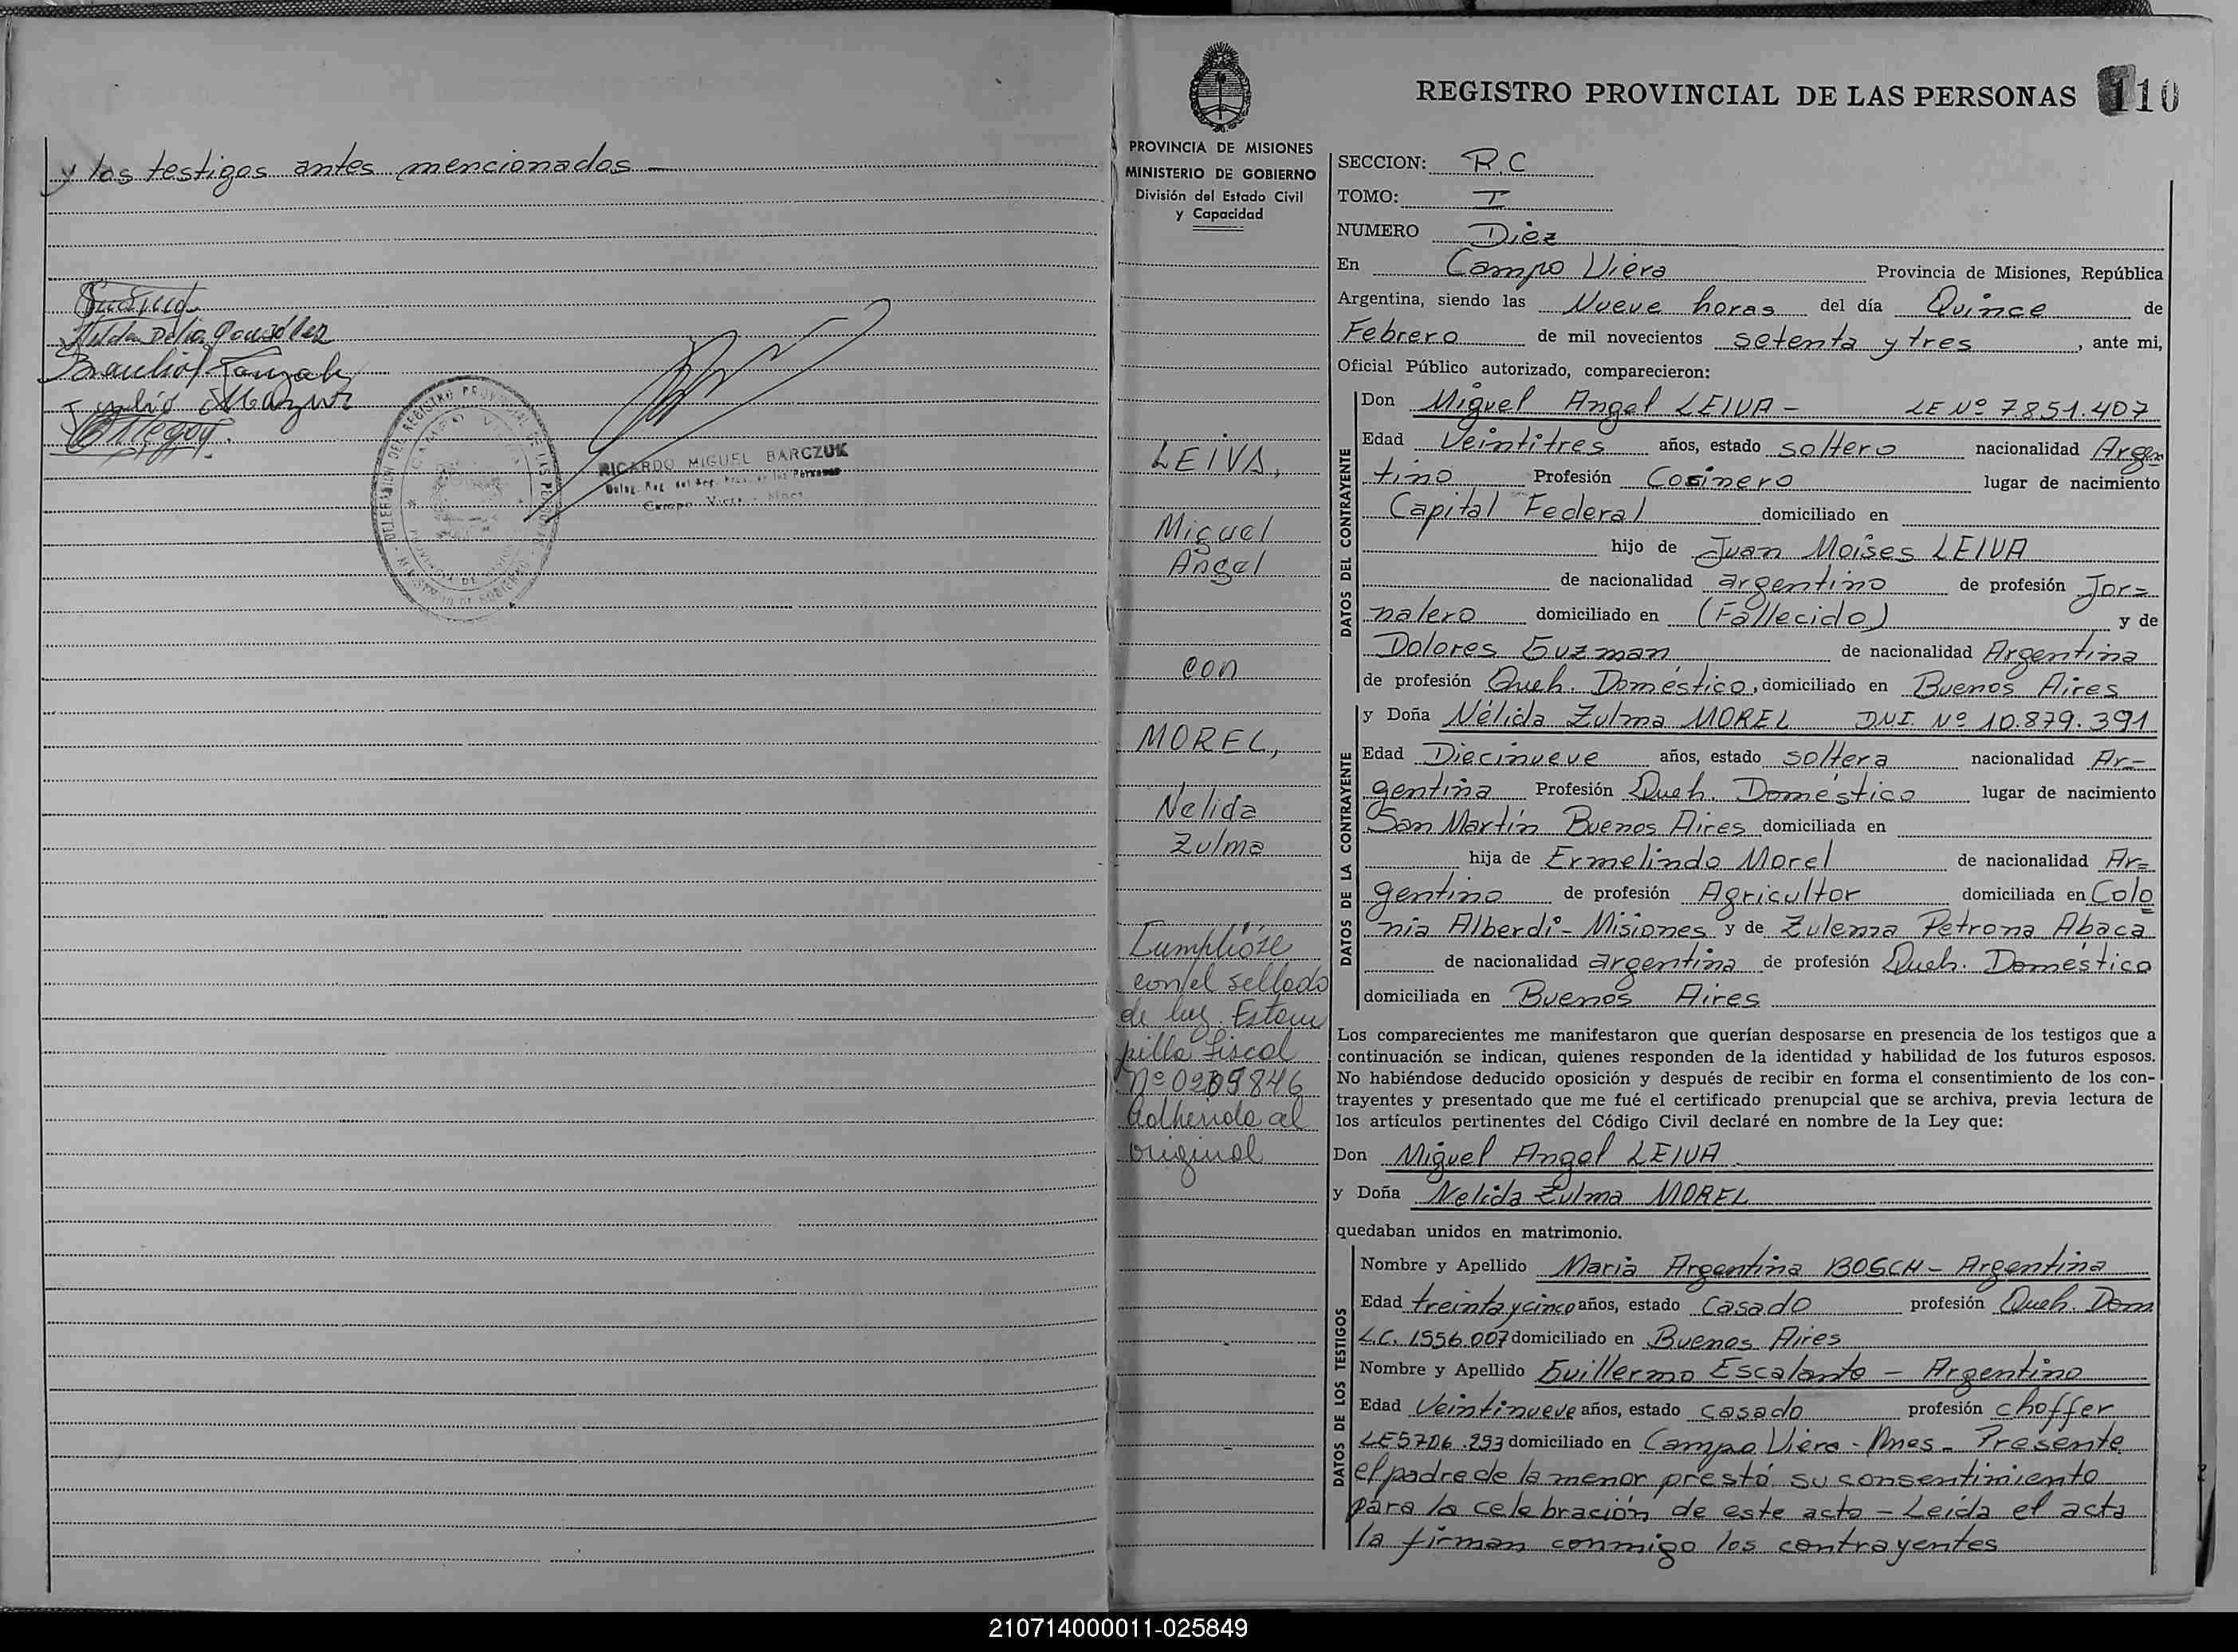 y los testigos antes mencionados
Hilda Delia Gonzalez
Braulio Gonzalez
Julio Mazur
RICARDO MIGUEL BARCZUK
Deleg. Reg. del Reg. Prov. de las Personas
Campo Viera - Mnes
PROVINCIA DE MISIONES
MINISTERIO DE GOBIERNO
División del Estado Civil
y Capacidad
LEIVA,
Miguel
Angel
con
MOREL,
Nelida
Zulma
Cumplióse
con el sellado
de ley. Estam
pilla fiscal
Nº 0209846
adherida al
original
REGISTRO PROVINCIAL DE LAS PERSONAS 110
SECCION: R.C
TOMO: I
NUMERO Diez
En Campo Viera Provincia de Misiones, República
Argentina, siendo las Nueve horas del día Quince de
Febrero de mil novecientos setenta y tres, ante mi,
Oficial Público autorizado, comparecieron:
DATOS DEL CONTRAYENTE
Don Miguel Angel LEIVA - LE Nº 7.851.407
Edad Veintitres años, estado soltero nacionalidad Argen
tino Profesión Cosinero lugar de nacimiento
Capital Federal domiciliado en
hijo de Juan Moises LEIVA
de nacionalidad argentino de profesión Jor=
nalero domiciliado en (Fallecido) y de
Dolores Guzman de nacionalidad Argentina
de profesión Queh. Doméstico, domiciliado en Buenos Aires
DATOS DE LA CONTRAYENTE
y Doña Nélida Zulma MOREL DNI. Nº 10.879.391
Edad Diecinueve años, estado soltera nacionalidad Ar-
gentina Profesión Queh. Doméstico lugar de nacimiento
San Martín Buenos Aires domiciliada en
hija de Ermelindo Morel de nacionalidad Ar=
gentino de profesión Agricultor domiciliada en Colo
nia Alberdi - Misiones y de Zulema Petrona Abaca
de nacionalidad argentina de profesión Queh. Doméstico
domiciliada en Buenos Aires
Los comparecientes me manifestaron que querían desposarse en presencia de los testigos que a
continuación se indican, quienes responden de la identidad y habilidad de los futuros esposos.
No habiéndose deducido oposición y después de recibir en forma el consentimiento de los con-
trayentes y presentado que me fué el certificado prenupcial que se archiva, previa lectura de
los artículos pertinentes del Código Civil declaré en nombre de la Ley que:
Don Miguel Angel LEIVA
y Doña Nelida Zulma MOREL
quedaban unidos en matrimonio.
DATOS DE LOS TESTIGOS
Nombre y Apellido Maria Argentina BOSCH - Argentina
Edad treinta y cinco años, estado Casado profesión Queh. Dom
L.C. 1556.007 domiciliado en Buenos Aires
Nombre y Apellido Guillermo Escalante - Argentino
Edad Veintinueve años, estado casado profesión choffer
LE 5706.253 domiciliado en Campo Viera - Mnes - Presente
el padre de la menor prestó su consentimiento
para la celebración de este acto - Leída el acta
la firman conmigo los contrayentes
210714000011-025849